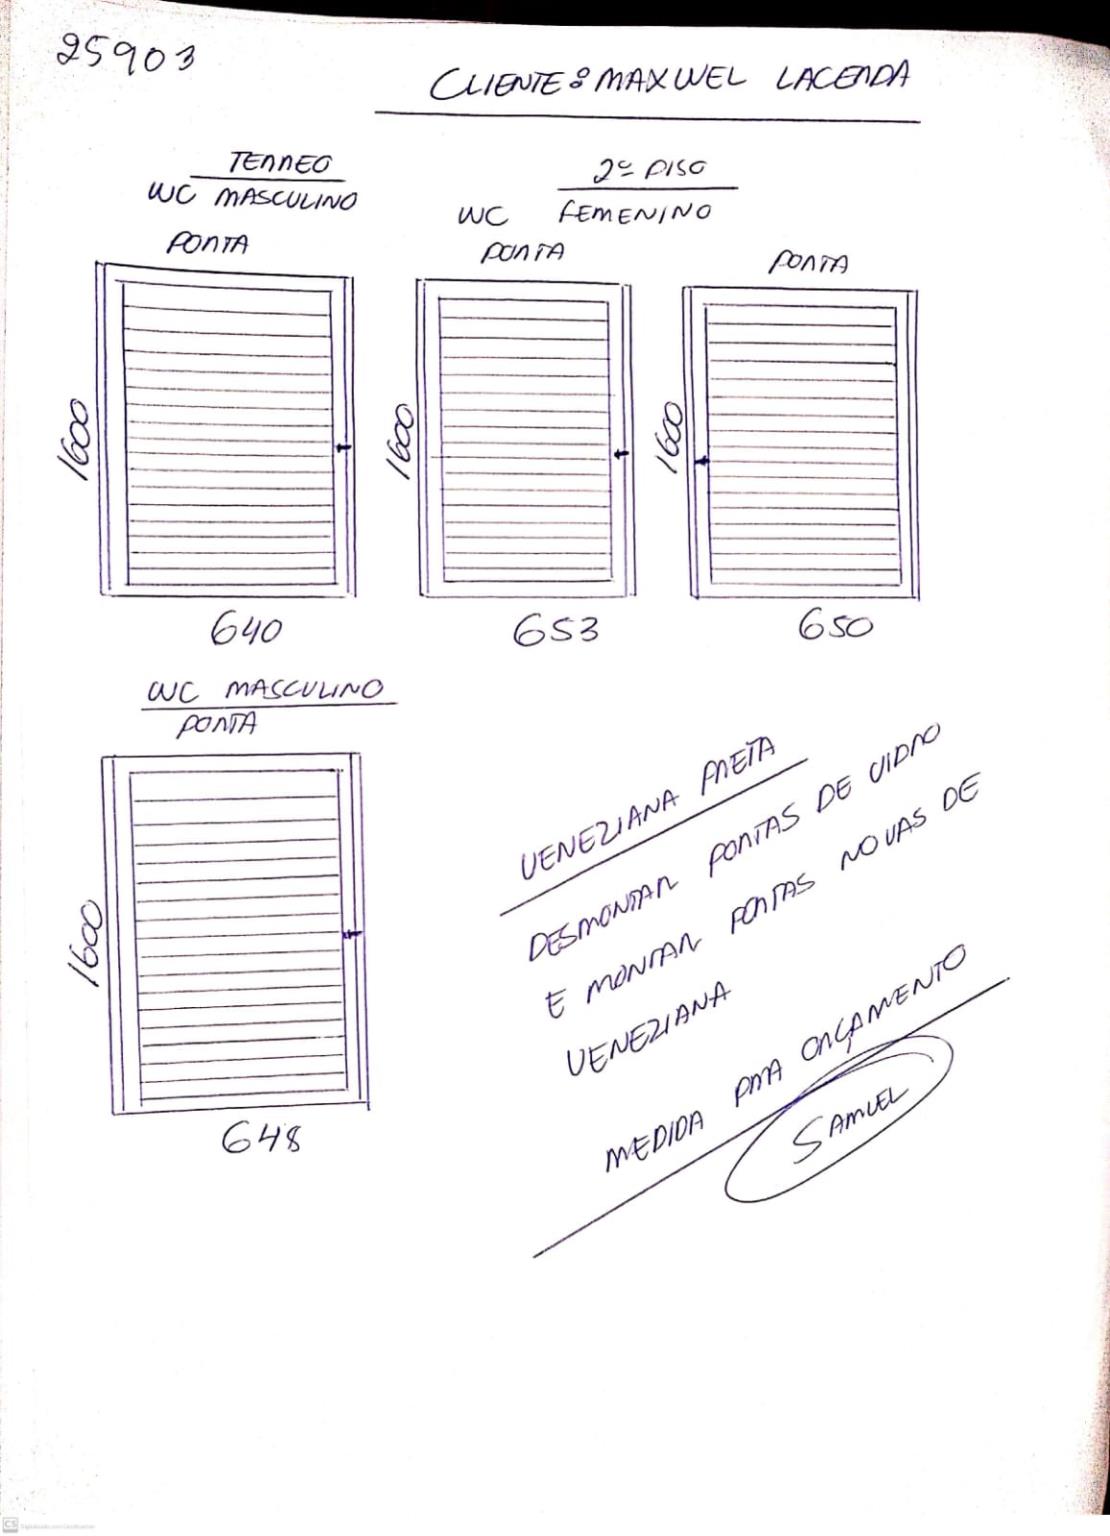 25903
CLIENTE: MAXWEL LACERDA
TERREO
WC MASCULINO
PORTA
2º PISO
WC FEMENINO
PORTA
PORTA
1600
1600
1600
640
653
650
WC MASCULINO
PORTA
1600
648
VENEZIANA PRETA
DESMONTAR PORTAS DE VIDRO
E MONTAR PORTAS NOVAS DE
VENEZIANA
MEDIDA PRA ORÇAMENTO
SAMUEL
CS Digitalizado com CamScanner